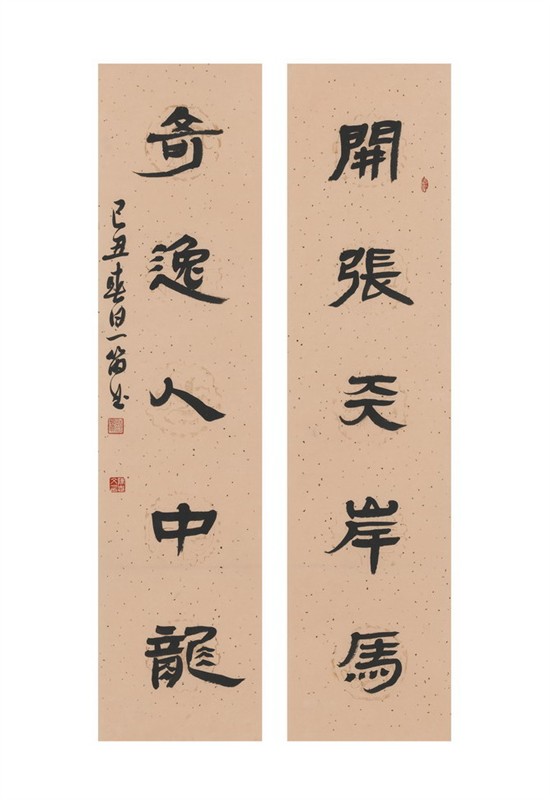 開張天岸馬
奇逸人中龍
己丑春日一笛书